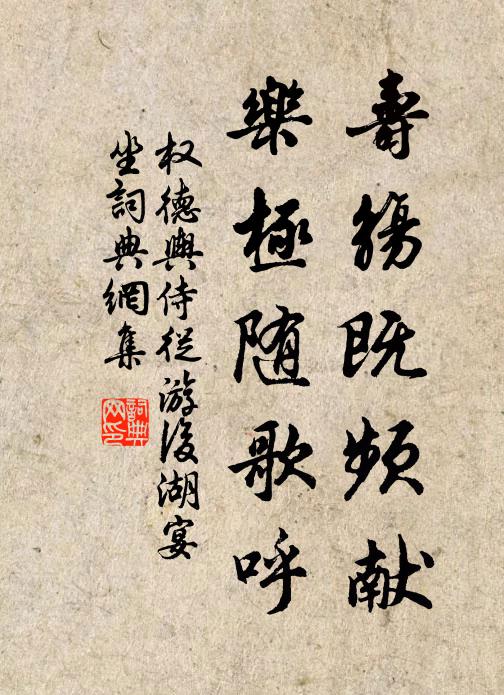 壽觴既頻献
樂極随歌呼
权德輿侍從游後湖宴
坐詞典網集
詞典
网印